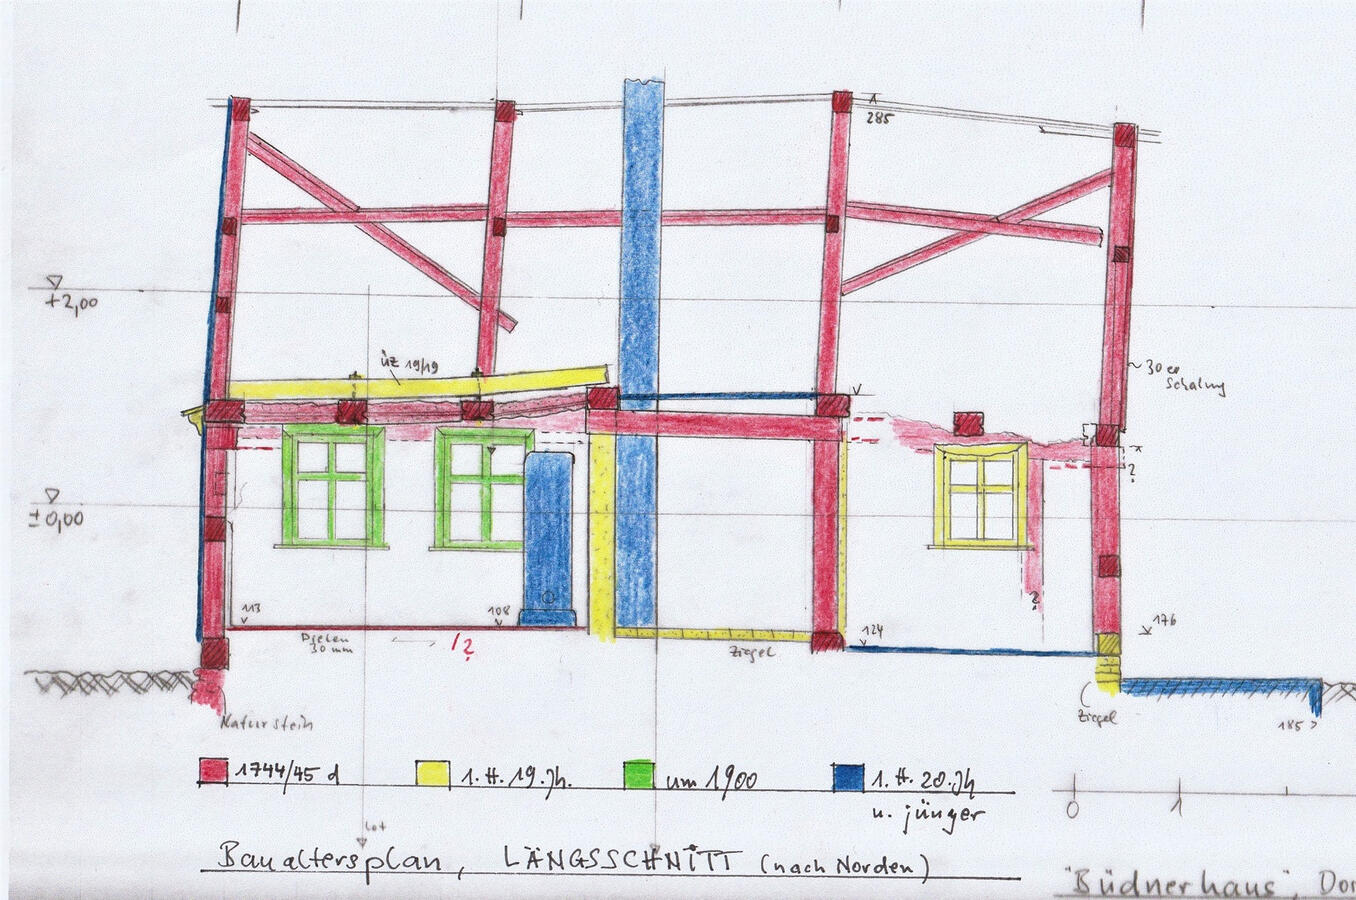 285
+2,00
üz 19/19
~30er
Schalung
±0,00
?
?
113
108
124
176
Dielen
30 mm
/?
Ziegel
Naturstein
Ziegel
185 >
1744/45 d
1. H. 19. Jh.
um 1900
1. H. 20. Jh
u. jünger
0 1
Lot
Baualtersplan, LÄNGSSCHNITT (nach Norden)
"Büdnerhaus", Dor